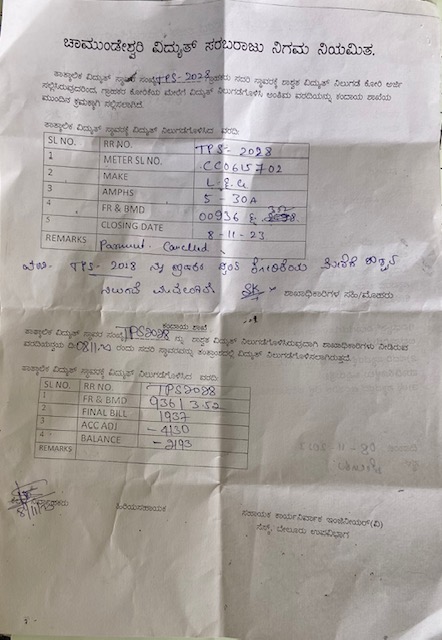 ಚಾಮುಂಡೇಶ್ವರಿ ವಿದ್ಯುತ್ ಸರಬರಾಜು ನಿಗಮ ನಿಯಮಿತ.
ತಾತ್ಕಾಲಿಕ ವಿದ್ಯುತ್ ಸ್ಥಾವರ ಸಂಖ್ಯೆ TPS-2028 ಗ್ರಾಹಕರು ಸದರಿ ಸ್ಥಾವರಕ್ಕೆ ಶಾಶ್ವತ ವಿದ್ಯುತ್ ನಿಲುಗಡೆ ಕೋರಿ ಅರ್ಜಿ
ಸಲ್ಲಿಸಿರುವುದರಿಂದ, ಗ್ರಾಹಕರ ಕೋರಿಕೆಯ ಮೇರೆಗೆ ವಿದ್ಯುತ್ ನಿಲುಗಡೆಗೊಳಿಸಿ ಅಂತಿಮ ವರದಿಯನ್ನು ಕಂದಾಯ ಶಾಖೆಯ
ಮುಂದಿನ ಕ್ರಮಕ್ಕಾಗಿ ಸಲ್ಲಿಸಲಾಗಿದೆ.
ತಾತ್ಕಾಲಿಕ ವಿದ್ಯುತ್ ಸ್ಥಾವರಕ್ಕೆ ವಿದ್ಯುತ್ ನಿಲುಗಡೆಗೊಳಿಸಿದ ವರದಿ:
SL NO. RR NO. TPS- 2028
1 METER SL NO. CC0615702
2 MAKE L & G
3 AMPHS 5 - 30A
4 FR & BMD 00936 &
5 CLOSING DATE 8-11-23
REMARKS Parmunt. Cancelled
TPS- 2028 ನ್ನು ಗ್ರಾಹಕರ ಕೋರಿಕೆಯ ಮೇರೆಗೆ
ಶಾಖಾಧಿಕಾರಿಗಳ ಸಹಿ/ಮೊಹರು
ಕಂದಾಯ ಶಾಖೆ
ತಾತ್ಕಾಲಿಕ ವಿದ್ಯುತ್ ಸ್ಥಾವರ ಸಂಖ್ಯೆ TPS2028 ನ್ನು ಶಾಶ್ವತ ವಿದ್ಯುತ್ ನಿಲುಗಡೆಗೊಳಿಸಿರುವುದಾಗಿ ಶಾಖಾಧಿಕಾರಿಗಳು ನೀಡಿರುವ
ವರದಿಯನ್ವಯ ದಿ:08/11/23 ರಂದು ಸದರಿ ಸ್ಥಾವರವನ್ನು ತಂತ್ರಾಂಶದಲ್ಲಿ ವಿದ್ಯುತ್ ನಿಲುಗಡೆಗೊಳಿಸಲಾಗಿರುತ್ತದೆ.
ತಾತ್ಕಾಲಿಕ ವಿದ್ಯುತ್ ಸ್ಥಾವರಕ್ಕೆ ವಿದ್ಯುತ್ ನಿಲುಗಡೆಗೊಳಿಸಿದ ವರದಿ:
SL NO. RR NO TPS2028
1 FR & BMD 936/3.52
2 FINAL BILL 1937
3 ACC ADJ -4130
4 BALANCE -2193
REMARKS
8/11/23
ಹಿರಿಯಸಹಾಯಕ
ಸಹಾಯಕ ಕಾರ್ಯನಿರ್ವಾಹಕ ಇಂಜಿನಿಯರ್(ವಿ)
ಸೆಸ್ಕ್, ಬೇಲೂರು ಉಪವಿಭಾಗ